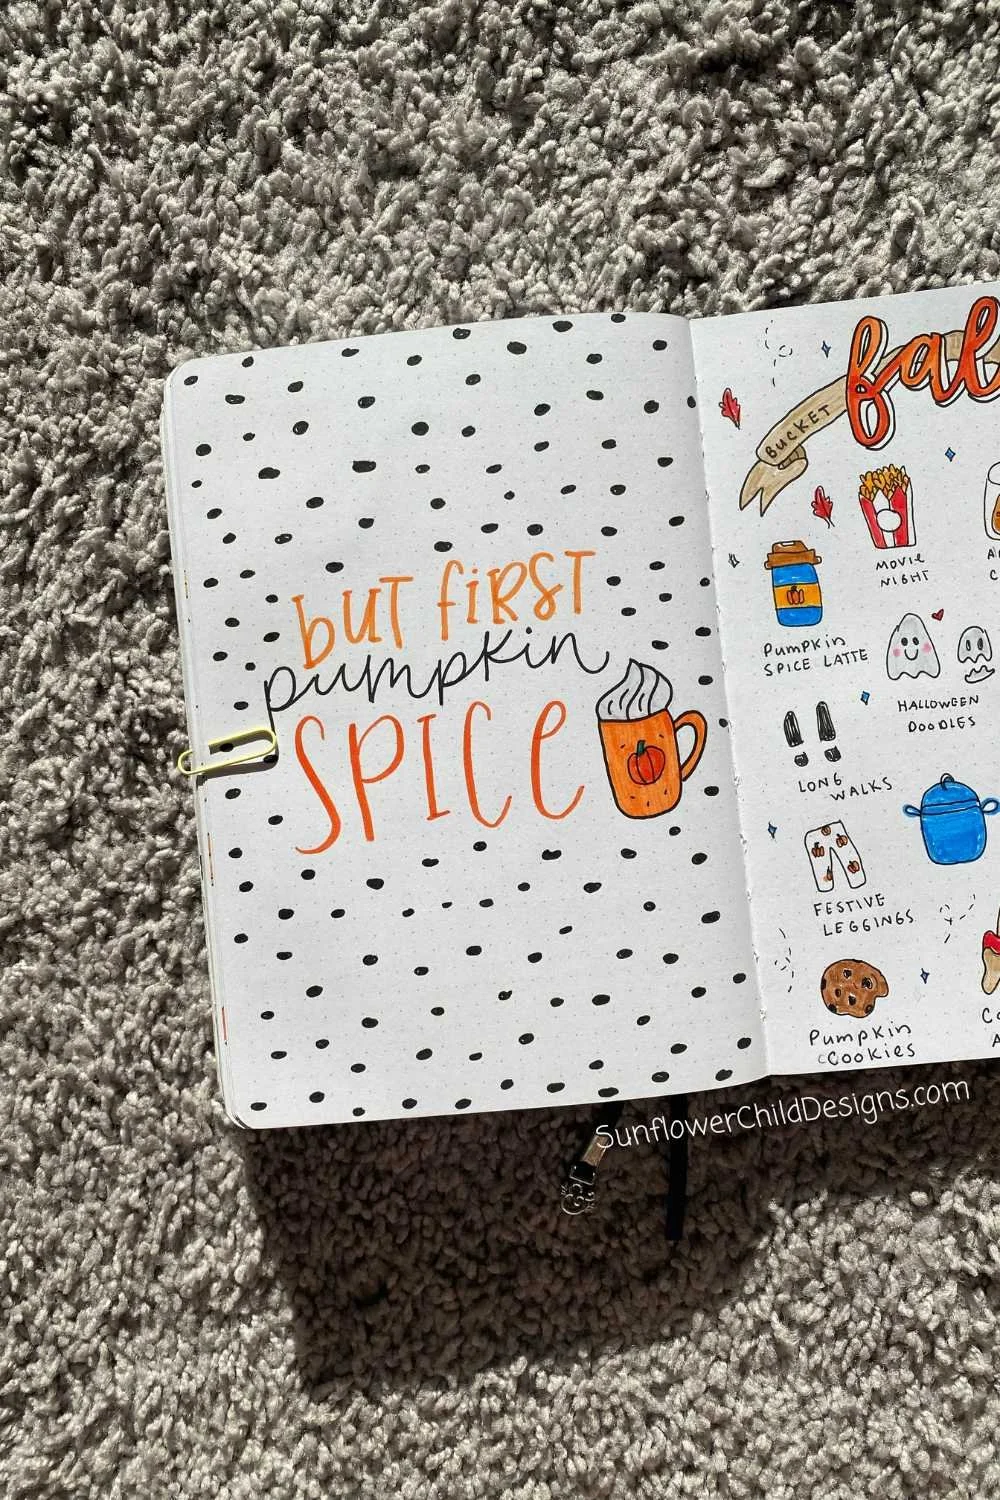 but first
pumpkin
spice
BUCKET
fal
MOVIE
NIGHT
Pumpkin
SPICE LATTE
HALLOWEEN
DOODLES
LONG
WALKS
FESTIVE
LEGGINGS
Pumpkin
Cookies
SunflowerChildDesigns.com